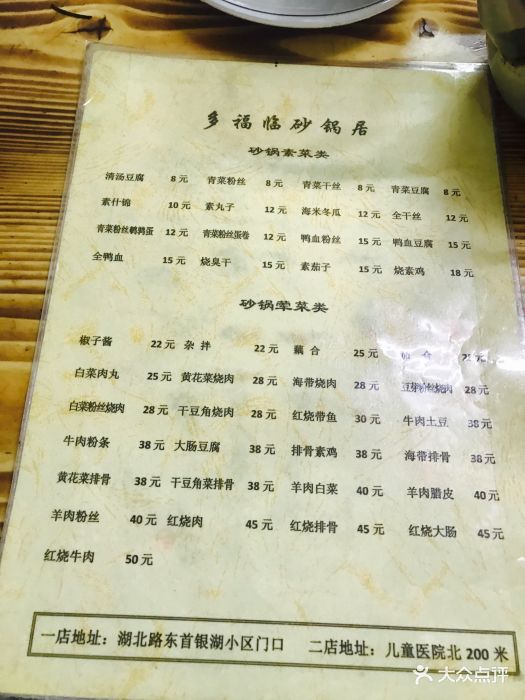 多福临砂锅居
砂锅素菜类
清汤豆腐 8元 青菜粉丝 8元 青菜干丝 8元 青菜豆腐 8元
素什锦 10元 素丸子 12元 海米冬瓜 12元 全干丝 12元
青菜粉丝鹌鹑蛋 12元 青菜粉丝蛋卷 12元 鸭血粉丝 15元 鸭血豆腐 15元
全鸭血 15元 烧臭干 15元 素茄子 15元 烧素鸡 18元
砂锅荤菜类
椒子酱 22元 杂拌 22元 藕合 25元 合 25元
白菜肉丸 25元 黄花菜烧肉 28元 海带烧肉 28元 豆芽粉丝烧肉 28元
白菜粉丝烧肉 28元 干豆角烧肉 28元 红烧带鱼 30元 牛肉土豆 38元
牛肉粉条 38元 大肠豆腐 38元 排骨素鸡 38元 海带排骨 38元
黄花菜排骨 38元 干豆角菜排骨 38元 羊肉白菜 40元 羊肉腊皮 40元
羊肉粉丝 40元 红烧肉 45元 红烧排骨 45元 红烧大肠 45元
红烧牛肉 50元
一店地址：湖北路东首银湖小区门口 二店地址：儿童医院北200米
大众点评